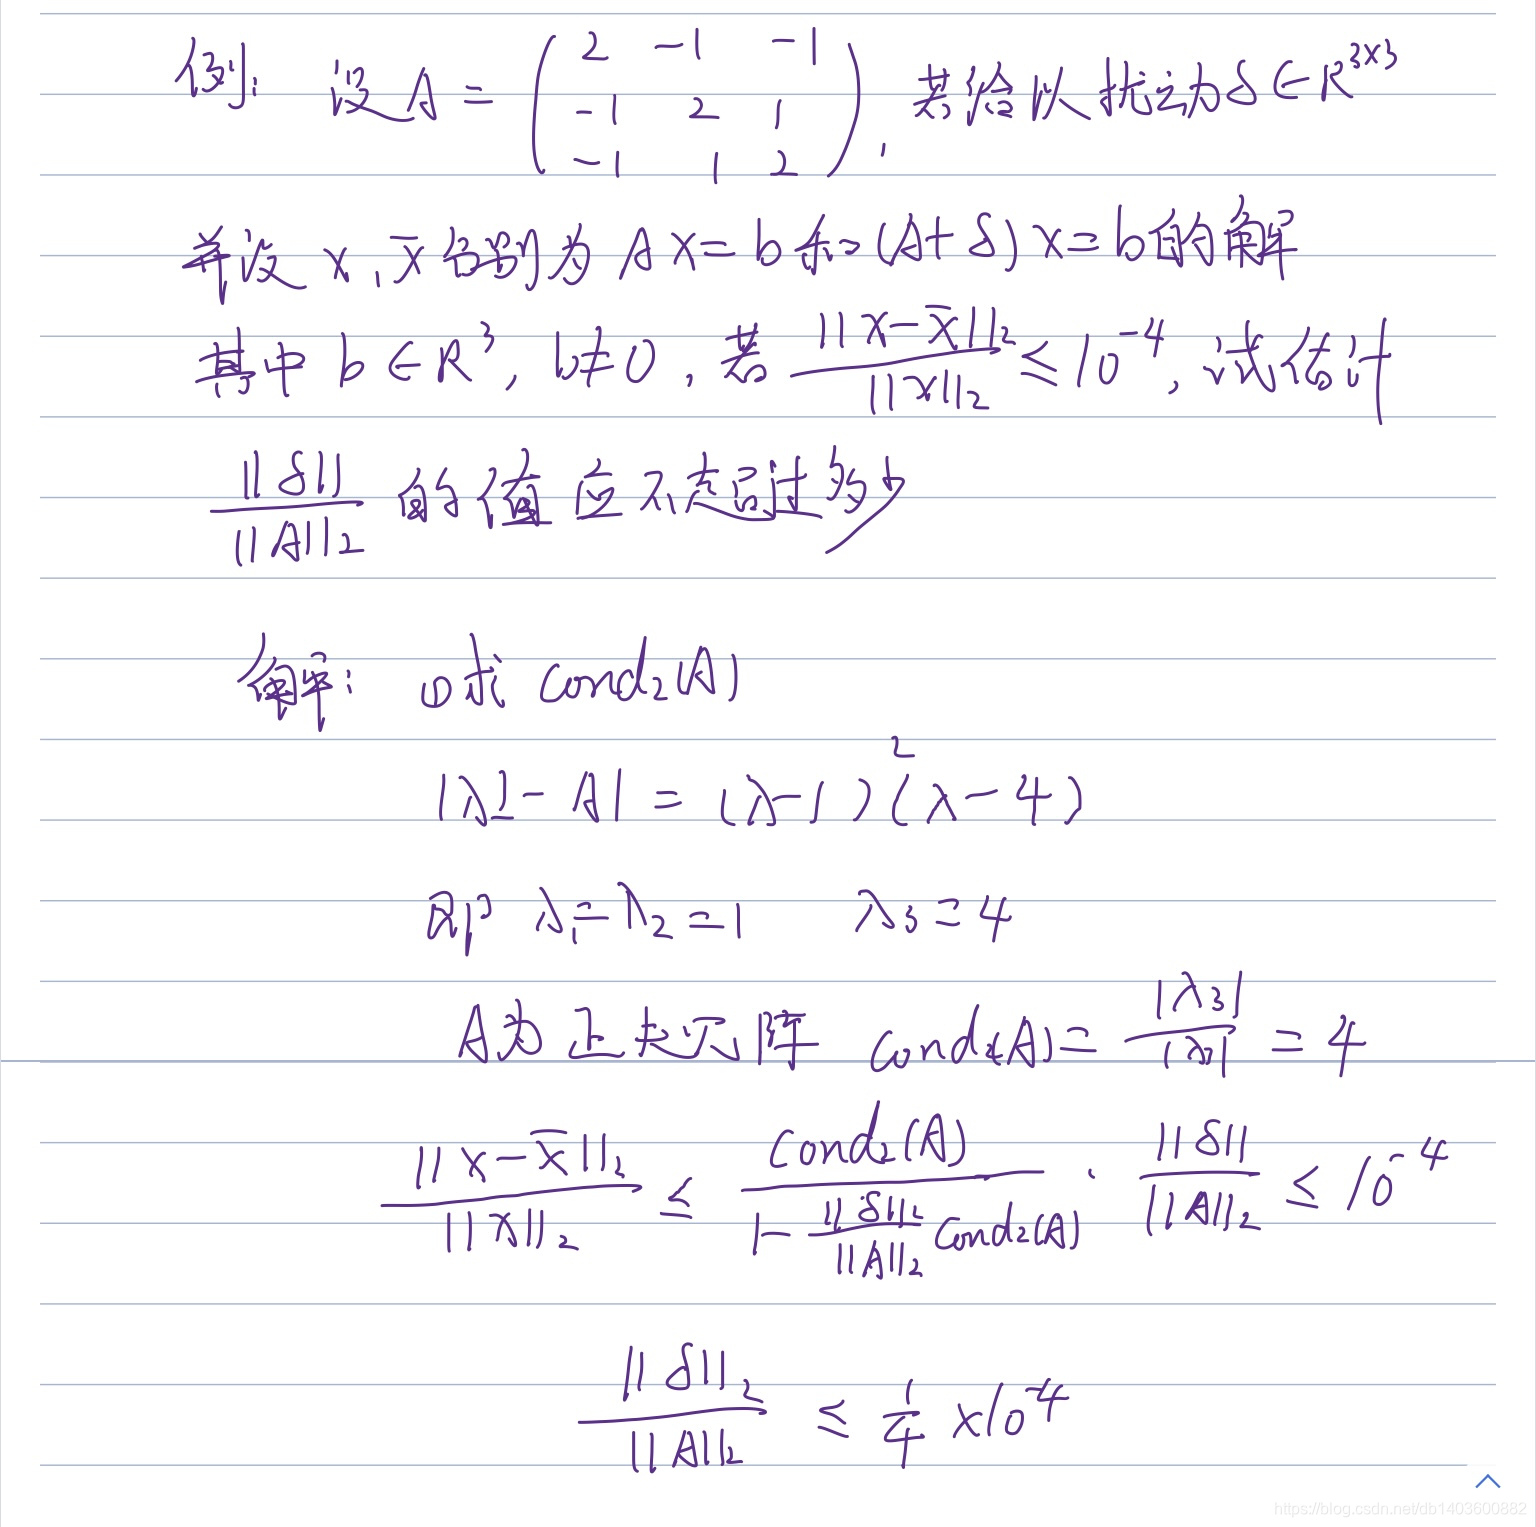 例: 设A = ( 2 -1 -1
-1 2 1
-1 1 2 ), 若给以扰动δ∈R^{3×3}
并设 x, x̄ 分别为 Ax=b 和 (A+δ)x=b 的解
其中 b∈R^3, b≠0, 若 ||x-x̄||_2 / ||x||_2 ≤ 10^{-4}, 试估计
||δ|| / ||A||_2 的值应不超过多少
解: ①求 cond_2(A)
|λI-A| = (λ-1)^2(λ-4)
即 λ_1=λ_2=1 λ_3=4
A为正定阵 cond_2(A) = |λ_3| / |λ_1| = 4
||x-x̄||_2 / ||x||_2 ≤ cond_2(A) / (1 - ||δ||_2 / ||A||_2 cond_2(A)) · ||δ|| / ||A||_2 ≤ 10^{-4}
||δ||_2 / ||A||_2 ≤ 1/4 × 10^{-4}
https://blog.csdn.net/db1403600882